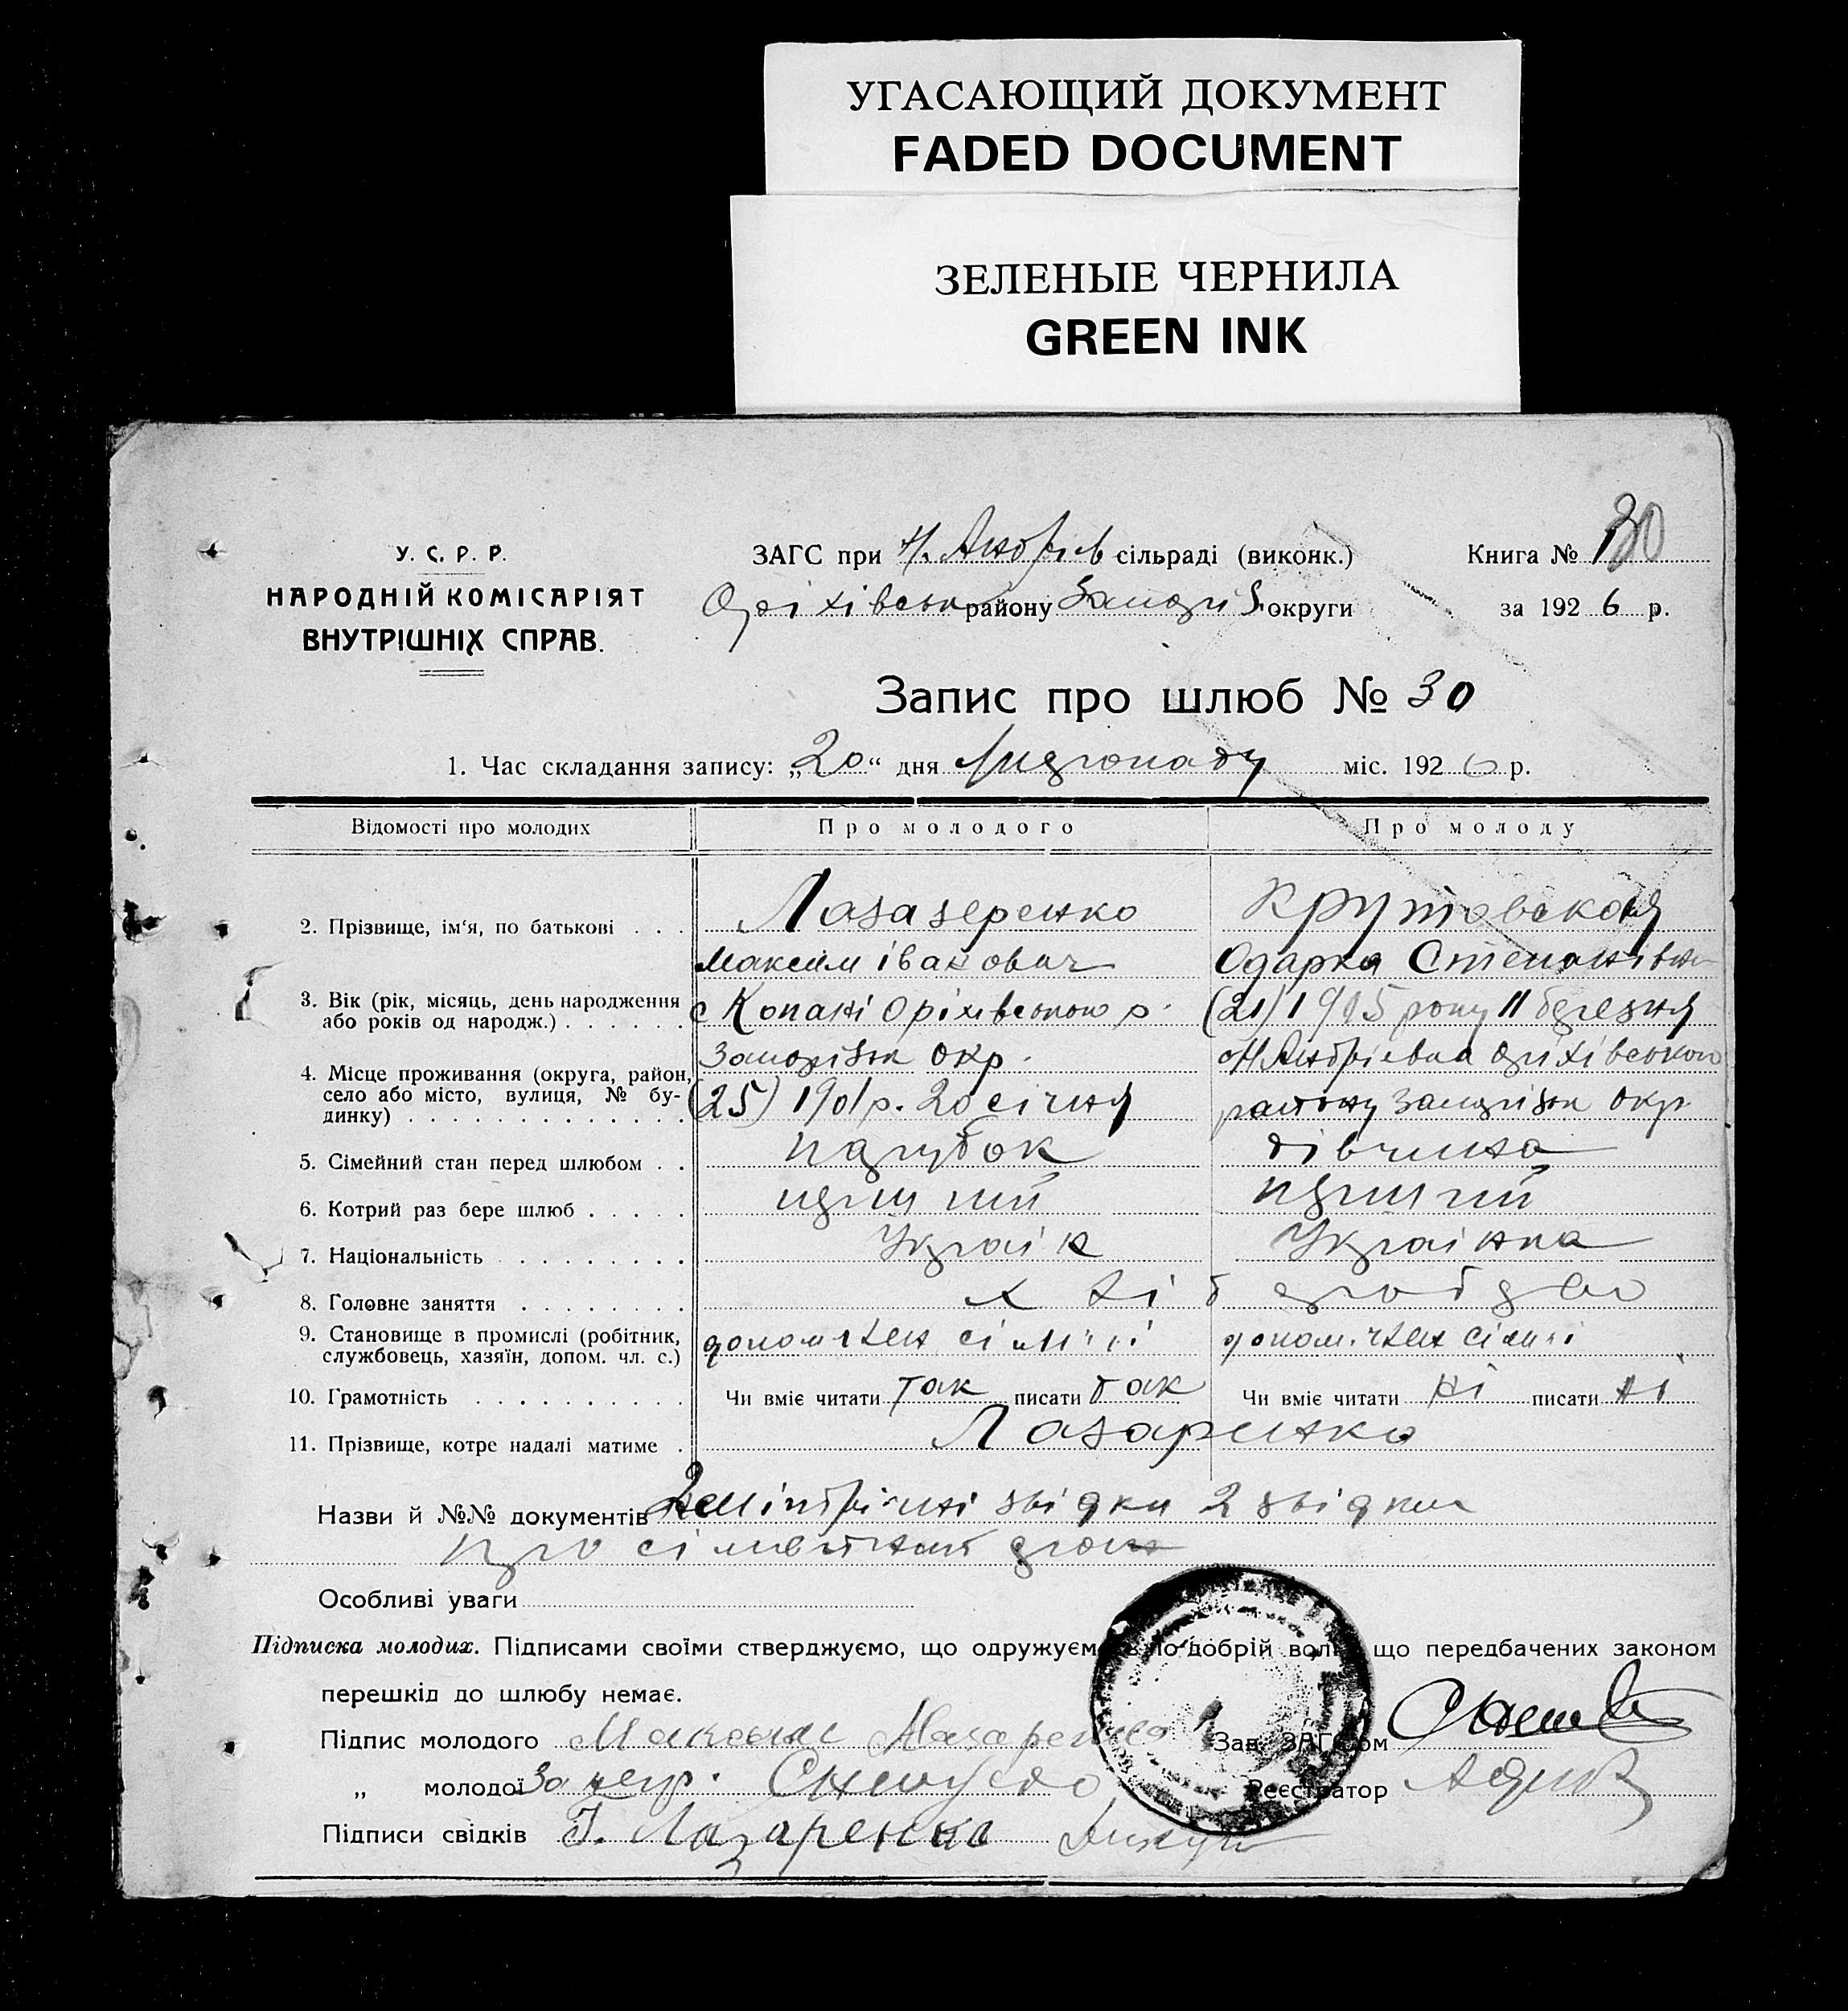 УГАСАЮЩИЙ ДОКУМЕНТ
FADED DOCUMENT
ЗЕЛЕНЫЕ ЧЕРНИЛА
GREEN INK
У. С. Р. Р.
НАРОДНІЙ КОМІСАРІЯТ
ВНУТРІШНІХ СПРАВ.
ЗАГС при Н. Андріїв сільраді (виконк.)
Оріхівськ району Запоріз. округи
Книга № 30
за 1926 р.
Запис про шлюб № 30
1. Час складання запису: „20“ дня Листопаду міс. 1926 р.
Відомості про молодих Про молодого Про молоду
2. Прізвище, ім'я, по батькові . . . Лазаренко Крутовская
Максим Іванович Одарка Степанівна
3. Вік (рік, місяць, день народження або років од народж.) . . . . . . с Копані Оріхівського р. (21) 1905 року 11 березня
Запорізьк окр. Н Андріевка Оріхівського
4. Місце проживання (округа, район, село або місто, вулиця, № будинку) . . . . . . . . . . . . . (25) 1901 р. 20 січня району Запорізьк Окр
5. Сімейний стан перед шлюбом . . парубок дівчина
6. Котрий раз бере шлюб . . . . . перший перший
7. Національність . . . . . . . . Україн Українка
8. Головне заняття . . . . . . . . хліб
9. Становище в промислі (робітник, службовець, хазяїн, допом. чл. с.) допом член сім'ї допом. член сім'ї
10. Грамотність . . . . . . . . . . Чи вміє читати так писати так Чи вміє читати ні писати ні
11. Прізвище, котре надалі матиме . Лазаренко
Назви й №№ документів звідки 2 звідки
про
Особливі уваги
Підписка молодих. Підписами своїми стверджуємо, що одружуємось по добрій волі що передбачених законом
перешкід до шлюбу немає.
Підпис молодого Максим Лазаренко Зав. ЗАГСом
„ молодої За непр. Реєстратор
Підписи свідків І. Лазаренко